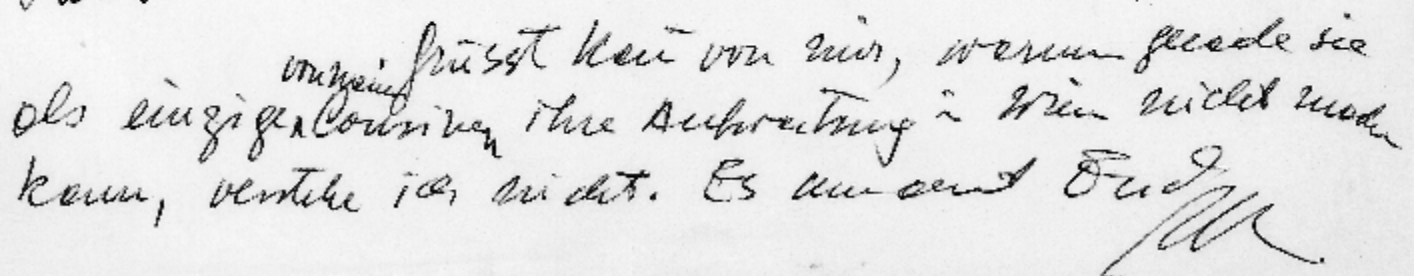 Grüsst von mir, warum gerade sie
als einzige von meinen Cousinen ihre Aufwartung in Wien nicht machen
kann, verstehe ich nicht. Es umarmt Euch